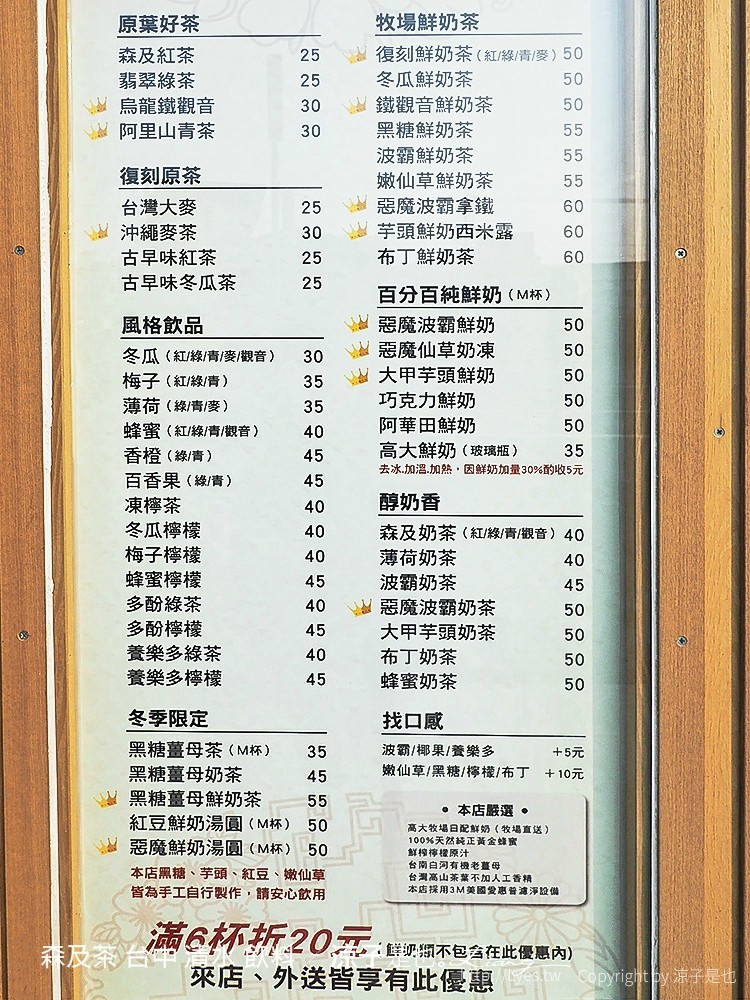 原葉好茶
森及紅茶 25
翡翠綠茶 25
烏龍鐵觀音 30
阿里山青茶 30
復刻原茶
台灣大麥 25
沖繩麥茶 30
古早味紅茶 25
古早味冬瓜茶 25
風格飲品
冬瓜(紅/綠/青/麥/觀音) 30
梅子(紅/綠/青) 35
薄荷(綠/青/麥) 35
蜂蜜(紅/綠/青/觀音) 40
香橙(綠/青) 45
百香果(綠/青) 45
凍檸茶 40
冬瓜檸檬 40
梅子檸檬 40
蜂蜜檸檬 45
多酚綠茶 40
多酚檸檬 45
養樂多綠茶 40
養樂多檸檬 45
冬季限定
黑糖薑母茶(M杯) 35
黑糖薑母奶茶 45
黑糖薑母鮮奶茶 55
紅豆鮮奶湯圓(M杯) 50
惡魔鮮奶湯圓(M杯) 50
本店黑糖、芋頭、紅豆、嫩仙草
皆為手工自行製作,請安心飲用
牧場鮮奶茶
復刻鮮奶茶(紅/綠/青/麥) 50
冬瓜鮮奶茶 50
鐵觀音鮮奶茶 50
黑糖鮮奶茶 55
波霸鮮奶茶 55
嫩仙草鮮奶茶 55
惡魔波霸拿鐵 60
芋頭鮮奶西米露 60
布丁鮮奶茶 60
百分百純鮮奶(M杯)
惡魔波霸鮮奶 50
惡魔仙草奶凍 50
大甲芋頭鮮奶 50
巧克力鮮奶 50
阿華田鮮奶 50
高大鮮奶(玻璃瓶) 35
去冰.加溫.加熱,因鮮奶加量30%酌收5元
醇奶香
森及奶茶(紅/綠/青/觀音) 40
薄荷奶茶 40
波霸奶茶 45
惡魔波霸奶茶 50
大甲芋頭奶茶 50
布丁奶茶 50
蜂蜜奶茶 50
找口感
波霸/椰果/養樂多 +5元
嫩仙草/黑糖/檸檬/布丁 +10元
• 本店嚴選 •
高大牧場日配鮮奶(牧場直送)
100%天然純正黃金蜂蜜
鮮榨檸檬原汁
台南白河有機老薑母
台灣高山茶葉不加人工香精
本店採用3M美國愛惠普濾淨設備
滿6杯折20元(鮮奶瓶不包含在此優惠內)
森及茶 台中 清水 飲料 涼子是也
來店、外送皆享有此優惠
Copyright by 涼子是也